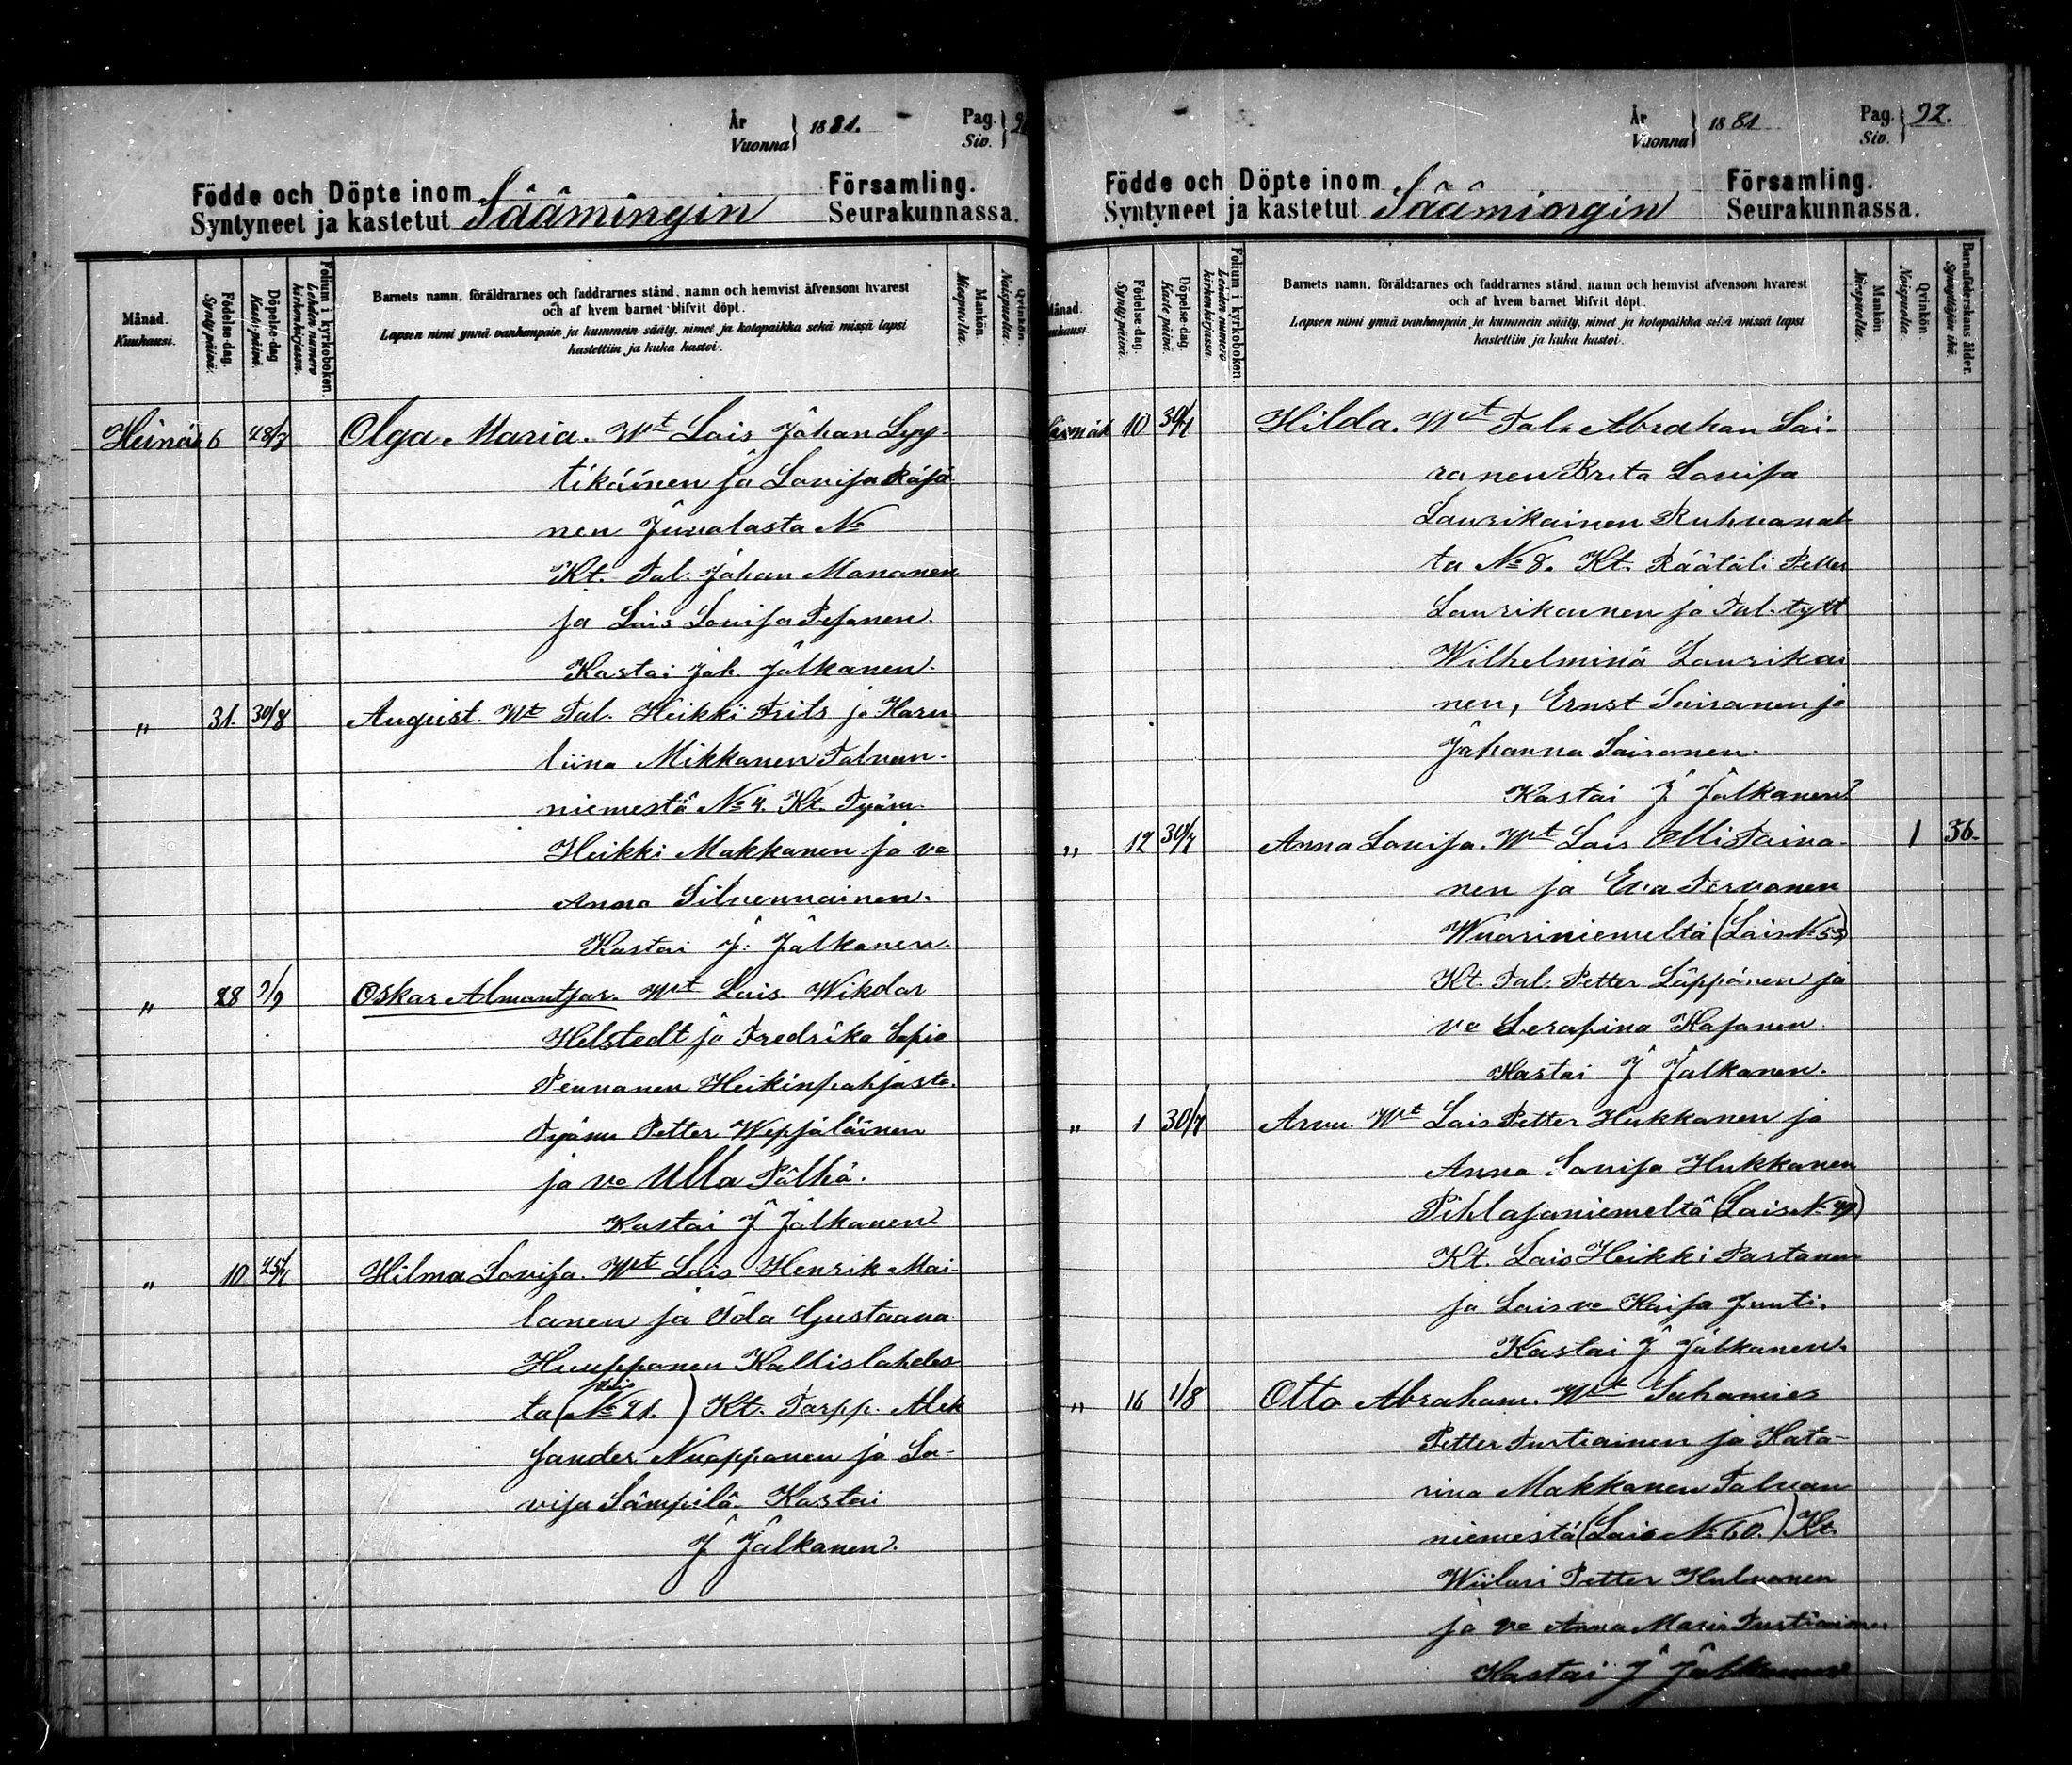 År
Vuonna } 1881.
Pag.
Siv. }
Födde och Döpte inom
Syntyneet ja kastetut Säämingin
Församling.
Seurakunnassa.
Månad.
Kuukausi.
Födelse-dag.
Synty-päivä.
Döpelse-dag.
Kaste-päivä.
Folium i kyrkoboken.
Lehden numero kirkonkirjassa.
Barnets namn, föräldrarnes och faddrarnes stånd, namn och hemvist äfvensom hvarest
och af hvem barnet blifvit döpt.
Lapsen nimi ynnä vanhempain ja kummein sääty, nimet ja kotopaikka sekä missä lapsi
kastettiin ja kuka kastoi.
Mankön.
Miespuolta.
Qvinkön.
Naispuolta.
Heinäk 6 Olga Maria. Wt Lois Johan Lyy-
tikäinen ja Lovisa Räsä
nen Juvolasta No
Kt. Tal. Johan Mononen
ja Lois Lovisa Pesonen.
Kastoi Joh. Jalkanen.
„ 31. 30/8 August. Wt Tal. Heikki Frits ja Karo
liina Mikkonen Talvan-
niemestä No 4. Kt. Tyäm.
Heikki Makkonen ja vo
Anna Silvennainen.
Kastoi J. Jalkanen.
„ 28 9/9 Oskar Almantjar. Wt Lois. Wikdor
Helstedt ja Fredrika Sofia
Pennanen Heikinpohjasta.
Tyäm Petter Wepsäläinen
ja vo Ulla Pälhä.
Kastoi J Jalkanen.
„ 10 25/7 Hilma Lovisa. Wt Lois Henrik Mai-
lanen ja Ida Gustaava
Huupponen Kallislahdes
ta (No 21.) Kt. Torpp. Alek
sander Nuopponen ja Lo-
visa Sämpilä. Kastoi
J Jalkanen.
År
Vuonna } 1881
Pag.
Siv. } 92.
Födde och Döpte inom
Syntyneet ja kastetut Säämingin
Församling.
Seurakunnassa.
Månad.
Kuukausi.
Födelse-dag.
Synty-päivä.
Döpelse-dag.
Kaste-päivä.
Folium i kyrkoboken.
Lehden numero kirkonkirjassa.
Barnets namn, föräldrarnes och faddrarnes stånd, namn och hemvist äfvensom hvarest
och af hvem barnet blifvit döpt.
Lapsen nimi ynnä vanhempain ja kummein sääty, nimet ja kotopaikka sekä missä lapsi
kastettiin ja kuka kastoi.
Mankön
Miespuolta.
Qvinkön
Naispuolta.
Barnaföderskans ålder.
Synnyttäjän ikä.
Heinäk 10 30/7 Hilda. Wt Tal. Abraham Sai-
ranen Brita Lovisa
Laurikainen Ruhvanal
ta No 8. Kt. Räätäli Petter
Laurikainen ja Tal. tytt
Wilhelmina Laurikai
nen, Ernst Sairanen ja
Johanna Sairanen.
Kastoi J Jalkanen
„ 12 30/7 Anna Lovisa. Wt Lois Olli Taiva- 1 36.
nen ja Eva Tervonen
Wuoriniemeltä (Lois No 55)
Kt. Tal. Petter Läppänen ja
vo Serafina Kosonen.
Kastoi J Jalkanen.
„ 1 30/7 Arvu. Wt Lois Petter Hukkanen ja
Anna Lovisa Hukkanen
Pihlajaniemeltä (Lois No 49)
Kt. Lois Heikki Partanen
ja Lois vo Kaisa Junti.
Kastoi J Jalkanen.
„ 16 1/8 Otto Abraham. Wt Suhamies
Petter Turtiainen ja Kata-
rina Makkonen Talvan
niemestä (Lois No 60.) Kt.
Wiilari Petter Hulvonen
ja vo Anna Maria Turtiainen
Kastoi J Jalkanen